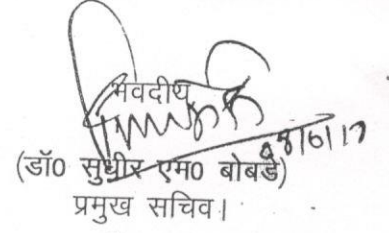 भवदीय
(डॉ0 सुधीर एम0 बोबडे)
प्रमुख सचिव।